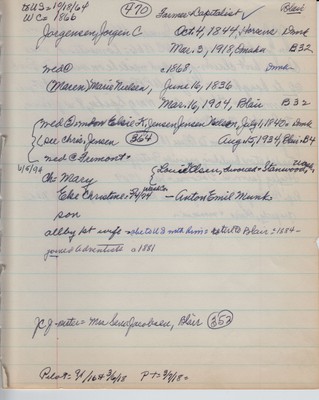 to U.S. = 19/18/64 (470) Farmer Capitalist ✓ Blair
W C = 1866
Jorgensen, Jorgen C Oct. 4, 1844, Horsens Dmk
Mar. 3, 1918, Omaha B 32
wed ① c1868, Dmk
(Maren) Marie Nielsen, June 16, 1836
Mar. 16, 1904, Blair B 32
wed ② widow Elsie K. Jensen Jensen Nelson, July 1, 1840 = Dmk
(see Chris Jensen (364) August 1, 1934, Blair = B4
wed @ Fremont =
Ch = Mary {Louis Olsen, divorced = Stanwood,
Eke Christine = — Anton Emil Munk
son
all by 1st wife = she to U.S. with him = to Blair = 1884 -
joined Adventists c 1881
J C J - sister = Mrs Jacobsen, Blair (352)
Pilot = 3/6/18 P T = 3/7/18 =